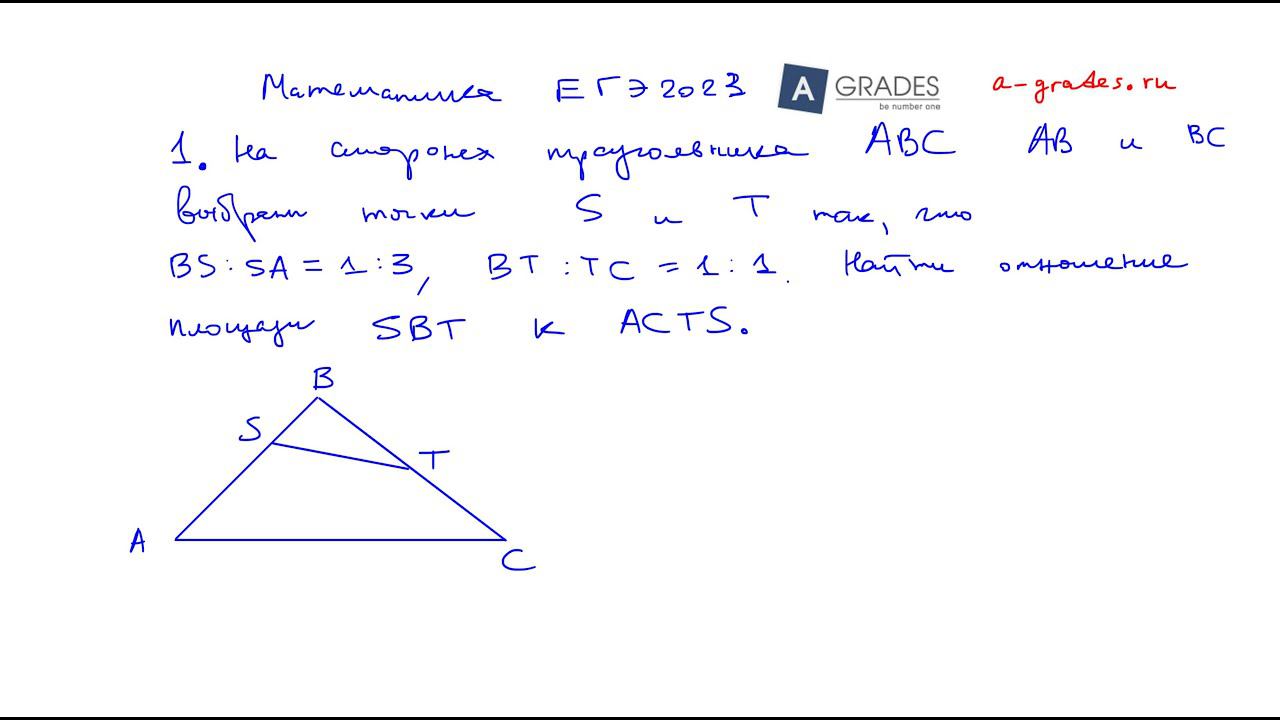 Математика ЕГЭ 2023 A GRADES be number one a-grades.ru
1. На сторонах треугольника ABC AB и BC
выбраны точки S и T так, что
BS : SA = 1 : 3, BT : TC = 1 : 1. Найти отношение
площади SBT к ACTS.
B
S
T
A
C